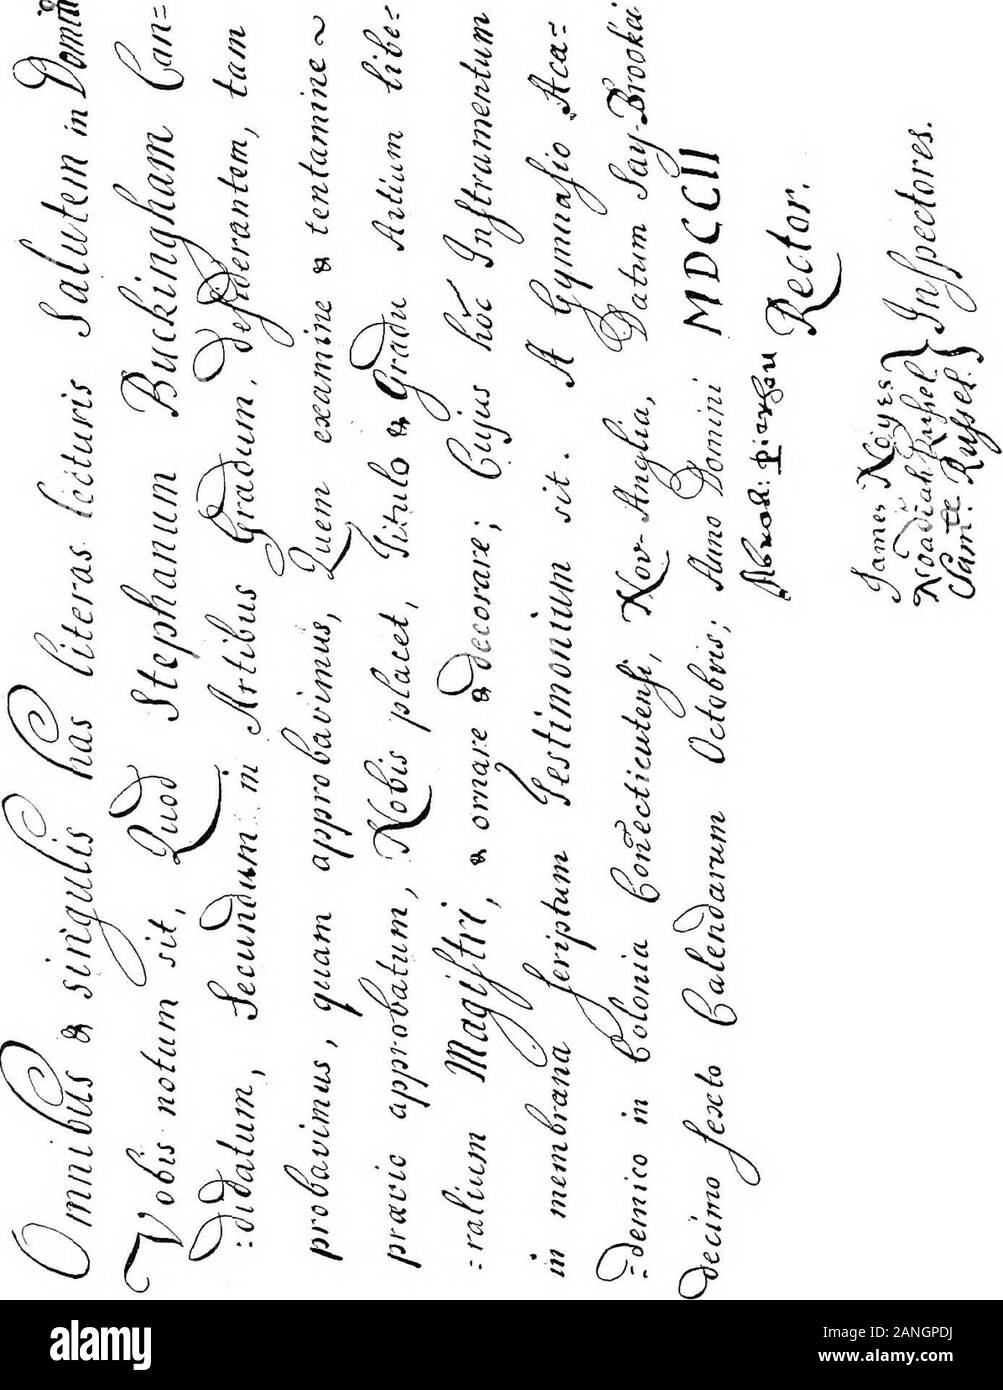 Omnibus & singulis has literas lecturis Salutem in Domino
Vobis notum sit, Quod Stephanum Buckingham Can=
:didatum, Secundum in Artibus Gradum, desiderantem, tam
probavimus, quam approbavimus, Quem examine & tentamine
prævio approbatum, Nobis placet, Titulo & Gradu Artium libe=
=ralium Magistri, & ornare & decorare; Cujus hoc Instrumentum
in membrana scriptum Testimonium sit. A Gymnasio Aca=
=demico in Colonia Connecticutensi, Nov-Anglia, Datum Say-Brooke:
decimo sexto Calendarum Octobris; Anno Domini MDCCII
Abrah: Pierson Rector.
James Noyes
Noadiah Russel } Inspectores.
Samll: Russel.
alamy
Image ID: 2ANGPDJ
www.alamy.com